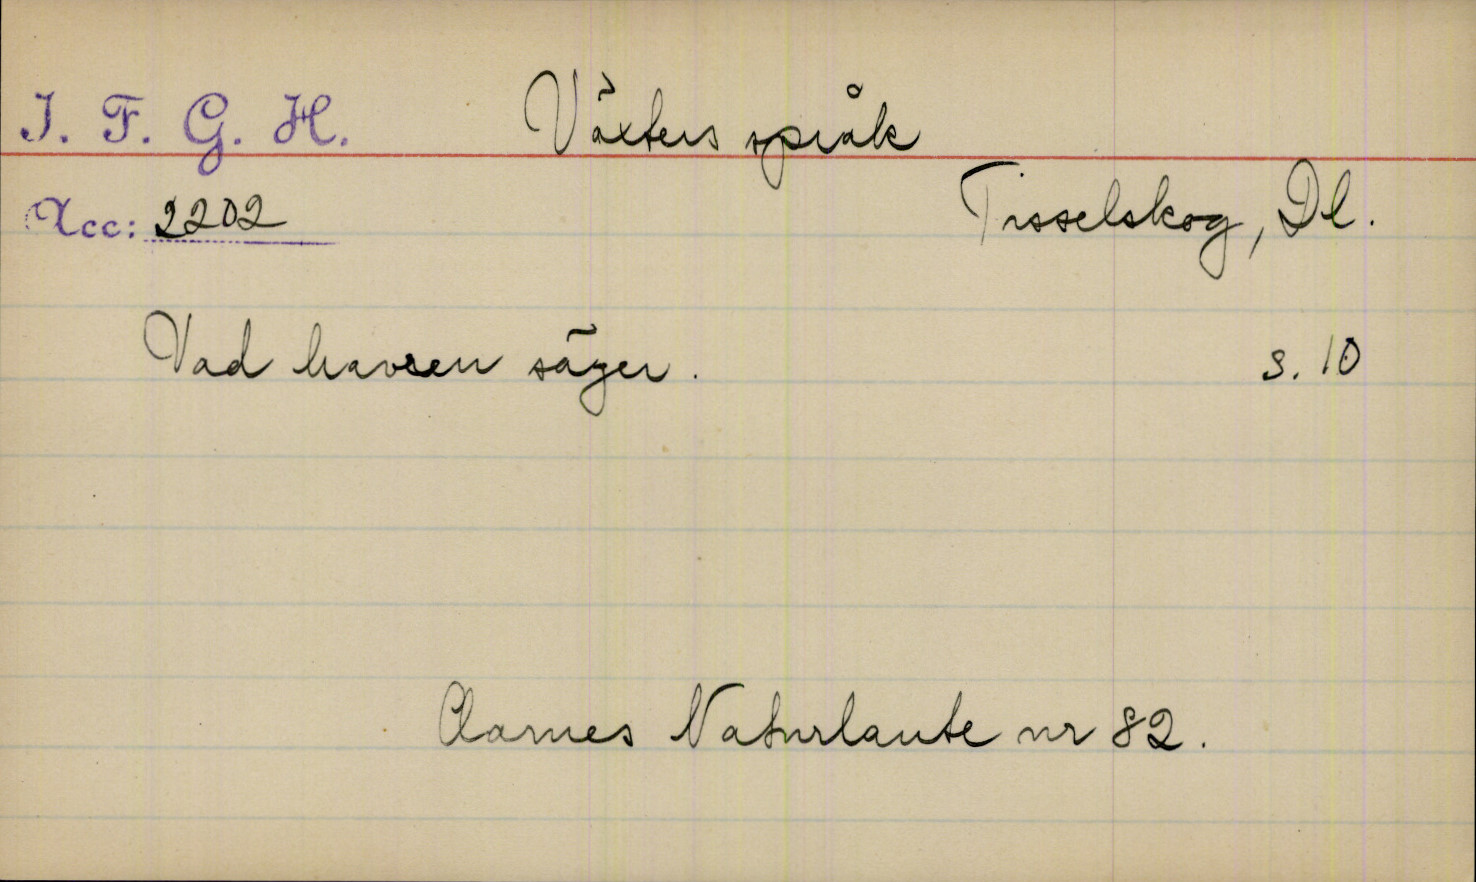 I. F. G. H. Växters språk
Acc: 2202 Tisselskog, Dl.
Vad havren säger. s. 10
Aarnes Naturlaute nr 82.